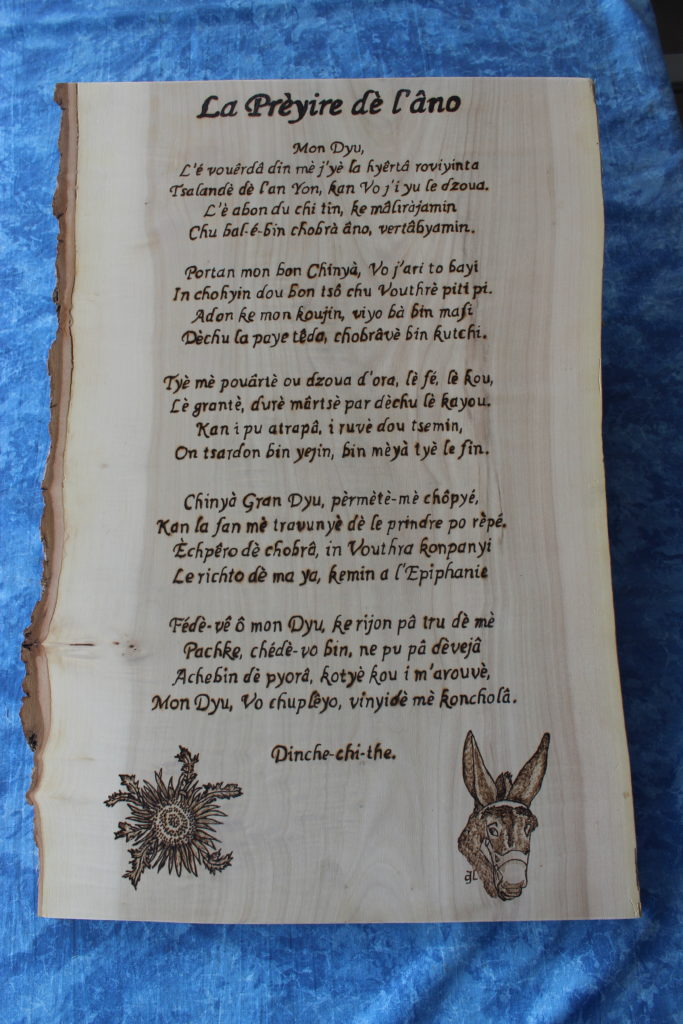 La Prèyire dè l'âno
Mon Dyu,
L'é vouêrdâ din mè j'yè la hyêrtâ roviyinta
Tsalandè dè l'an Yon, kan Vo j'i yu le dzoua.
L'è abon du chi tin, ke mâlirâjamin
Chu bal-é-bin chobrâ âno, vertâbyamin.
Portan mon bon Chinyà, Vo j'ari to bayi
In chohyin dou bon tsô chu Vouthrè piti pi.
Adon ke mon koujin, viyo bà bin mafi
Dèchu la paye têda, chobrâvè bin kutchi.
Tyè mè pouârtè ou dzoua d'ora, lè fé, lè kou,
Lè grantè, durè mârtsè par dèchu lè kayou.
Kan i pu atrapâ, i ruvè dou tsemin,
On tsardon bin yejin, bin mèyà tyè le fin.
Chinyà Gran Dyu, pèrmètè-mè chôpyé,
Kan la fan mè travunyè dè le prindre po rèpé.
Èchpêro dè chobrâ, in Vouthra konpanyi
Le richto dè ma ya, kemin a l'Epiphanie
Fédè-vê ô mon Dyu, ke rijon pâ tru dè mè
Pachke, chédè-vo bin, ne pu pâ dèvejâ
Achebin dè pyorâ, kotyè kou i m'arouvè,
Mon Dyu, Vo chuplêyo, vinyidè mè koncholâ.
Dinche-chi-the.